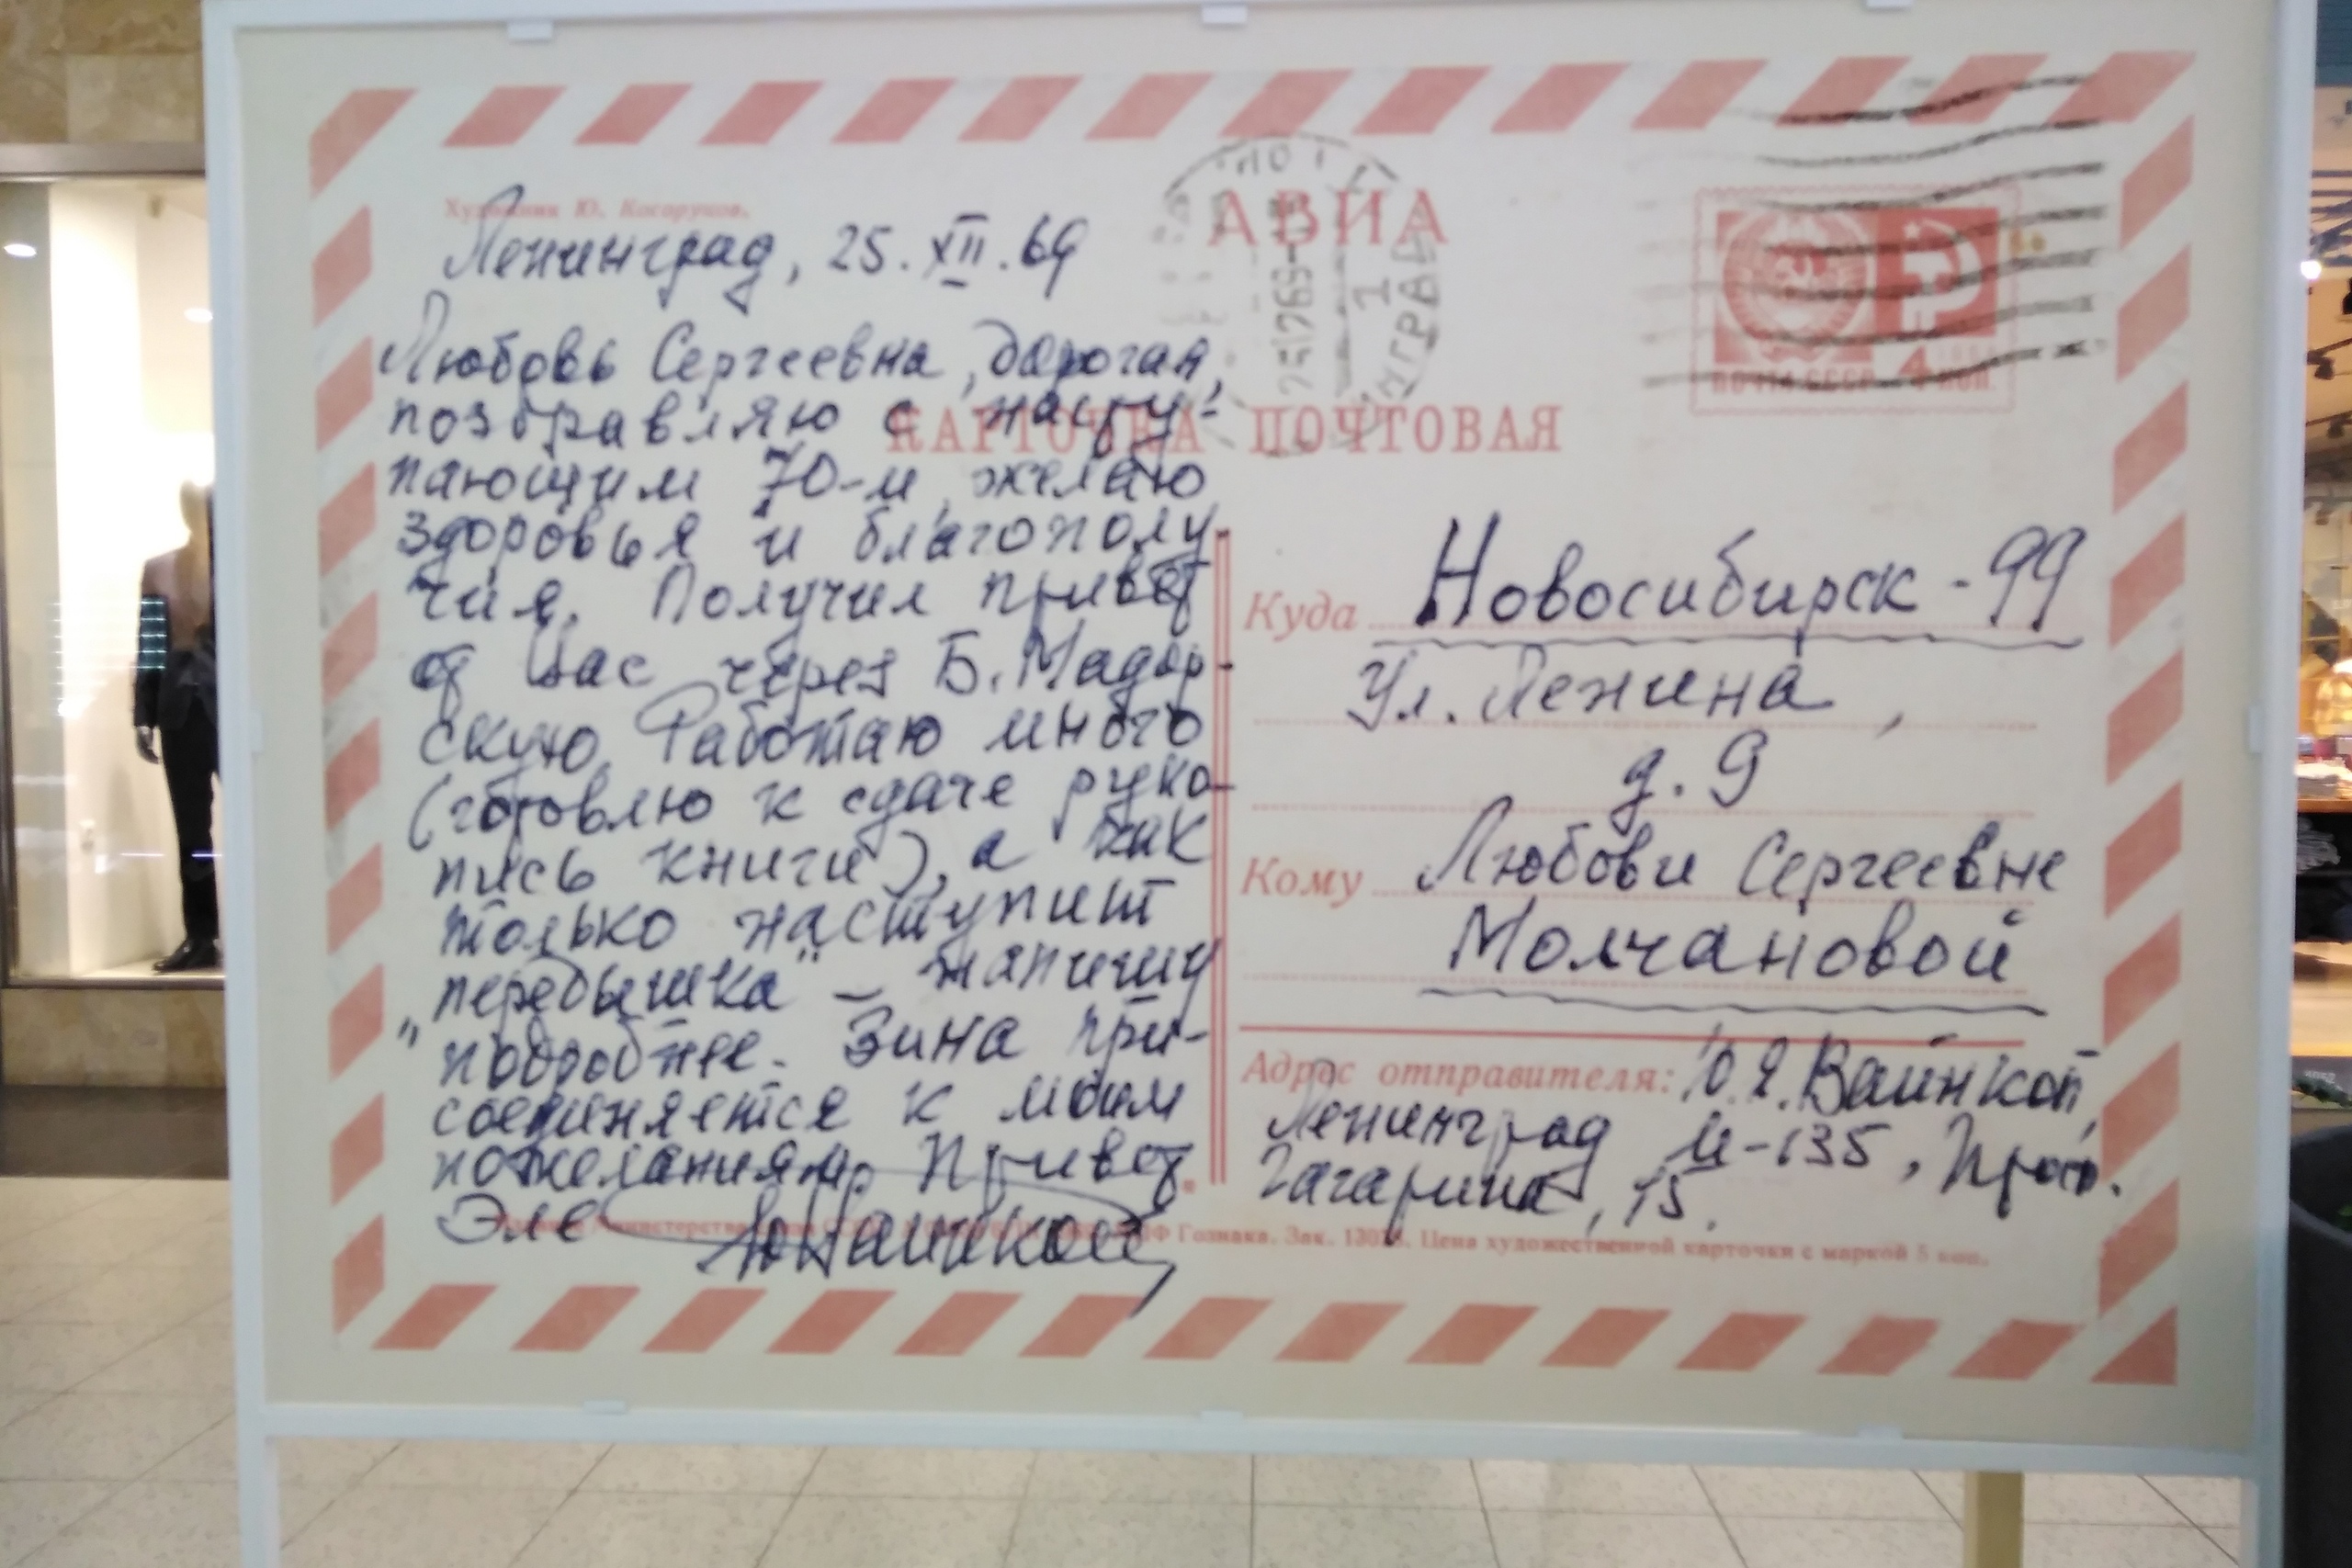 Художник Ю. Косоруков.
Ленинград, 25.XII.69
Любовь Сергеевна, дорогая,
поздравляю с насту-
пающим 70-м, желаю
здоровья и благополу
чия. Получил привет
от Вас через Б. Мадор-
скую. Работаю много
(готовлю к сдаче руко-
пись книги), а как
только наступит
„передышка“ – напишу
подробнее. Зина при-
соединяется к моим
пожеланиям. Привет
Эле
ЮВайнкоп
АВИА
КАРТОЧКА ПОЧТОВАЯ
251269
1
ПОЧТА СССР 4 КОП.
Куда Новосибирск-99
Ул. Ленина,
д. 9
Кому Любови Сергеевне
Молчановой
Адрес отправителя: Ю.Я. Вайнкоп,
Ленинград М-135, Просп.
Гагарина, 15.
Министерства СССР Гознака. Зак. Цена художественной карточки с маркой 5 коп.